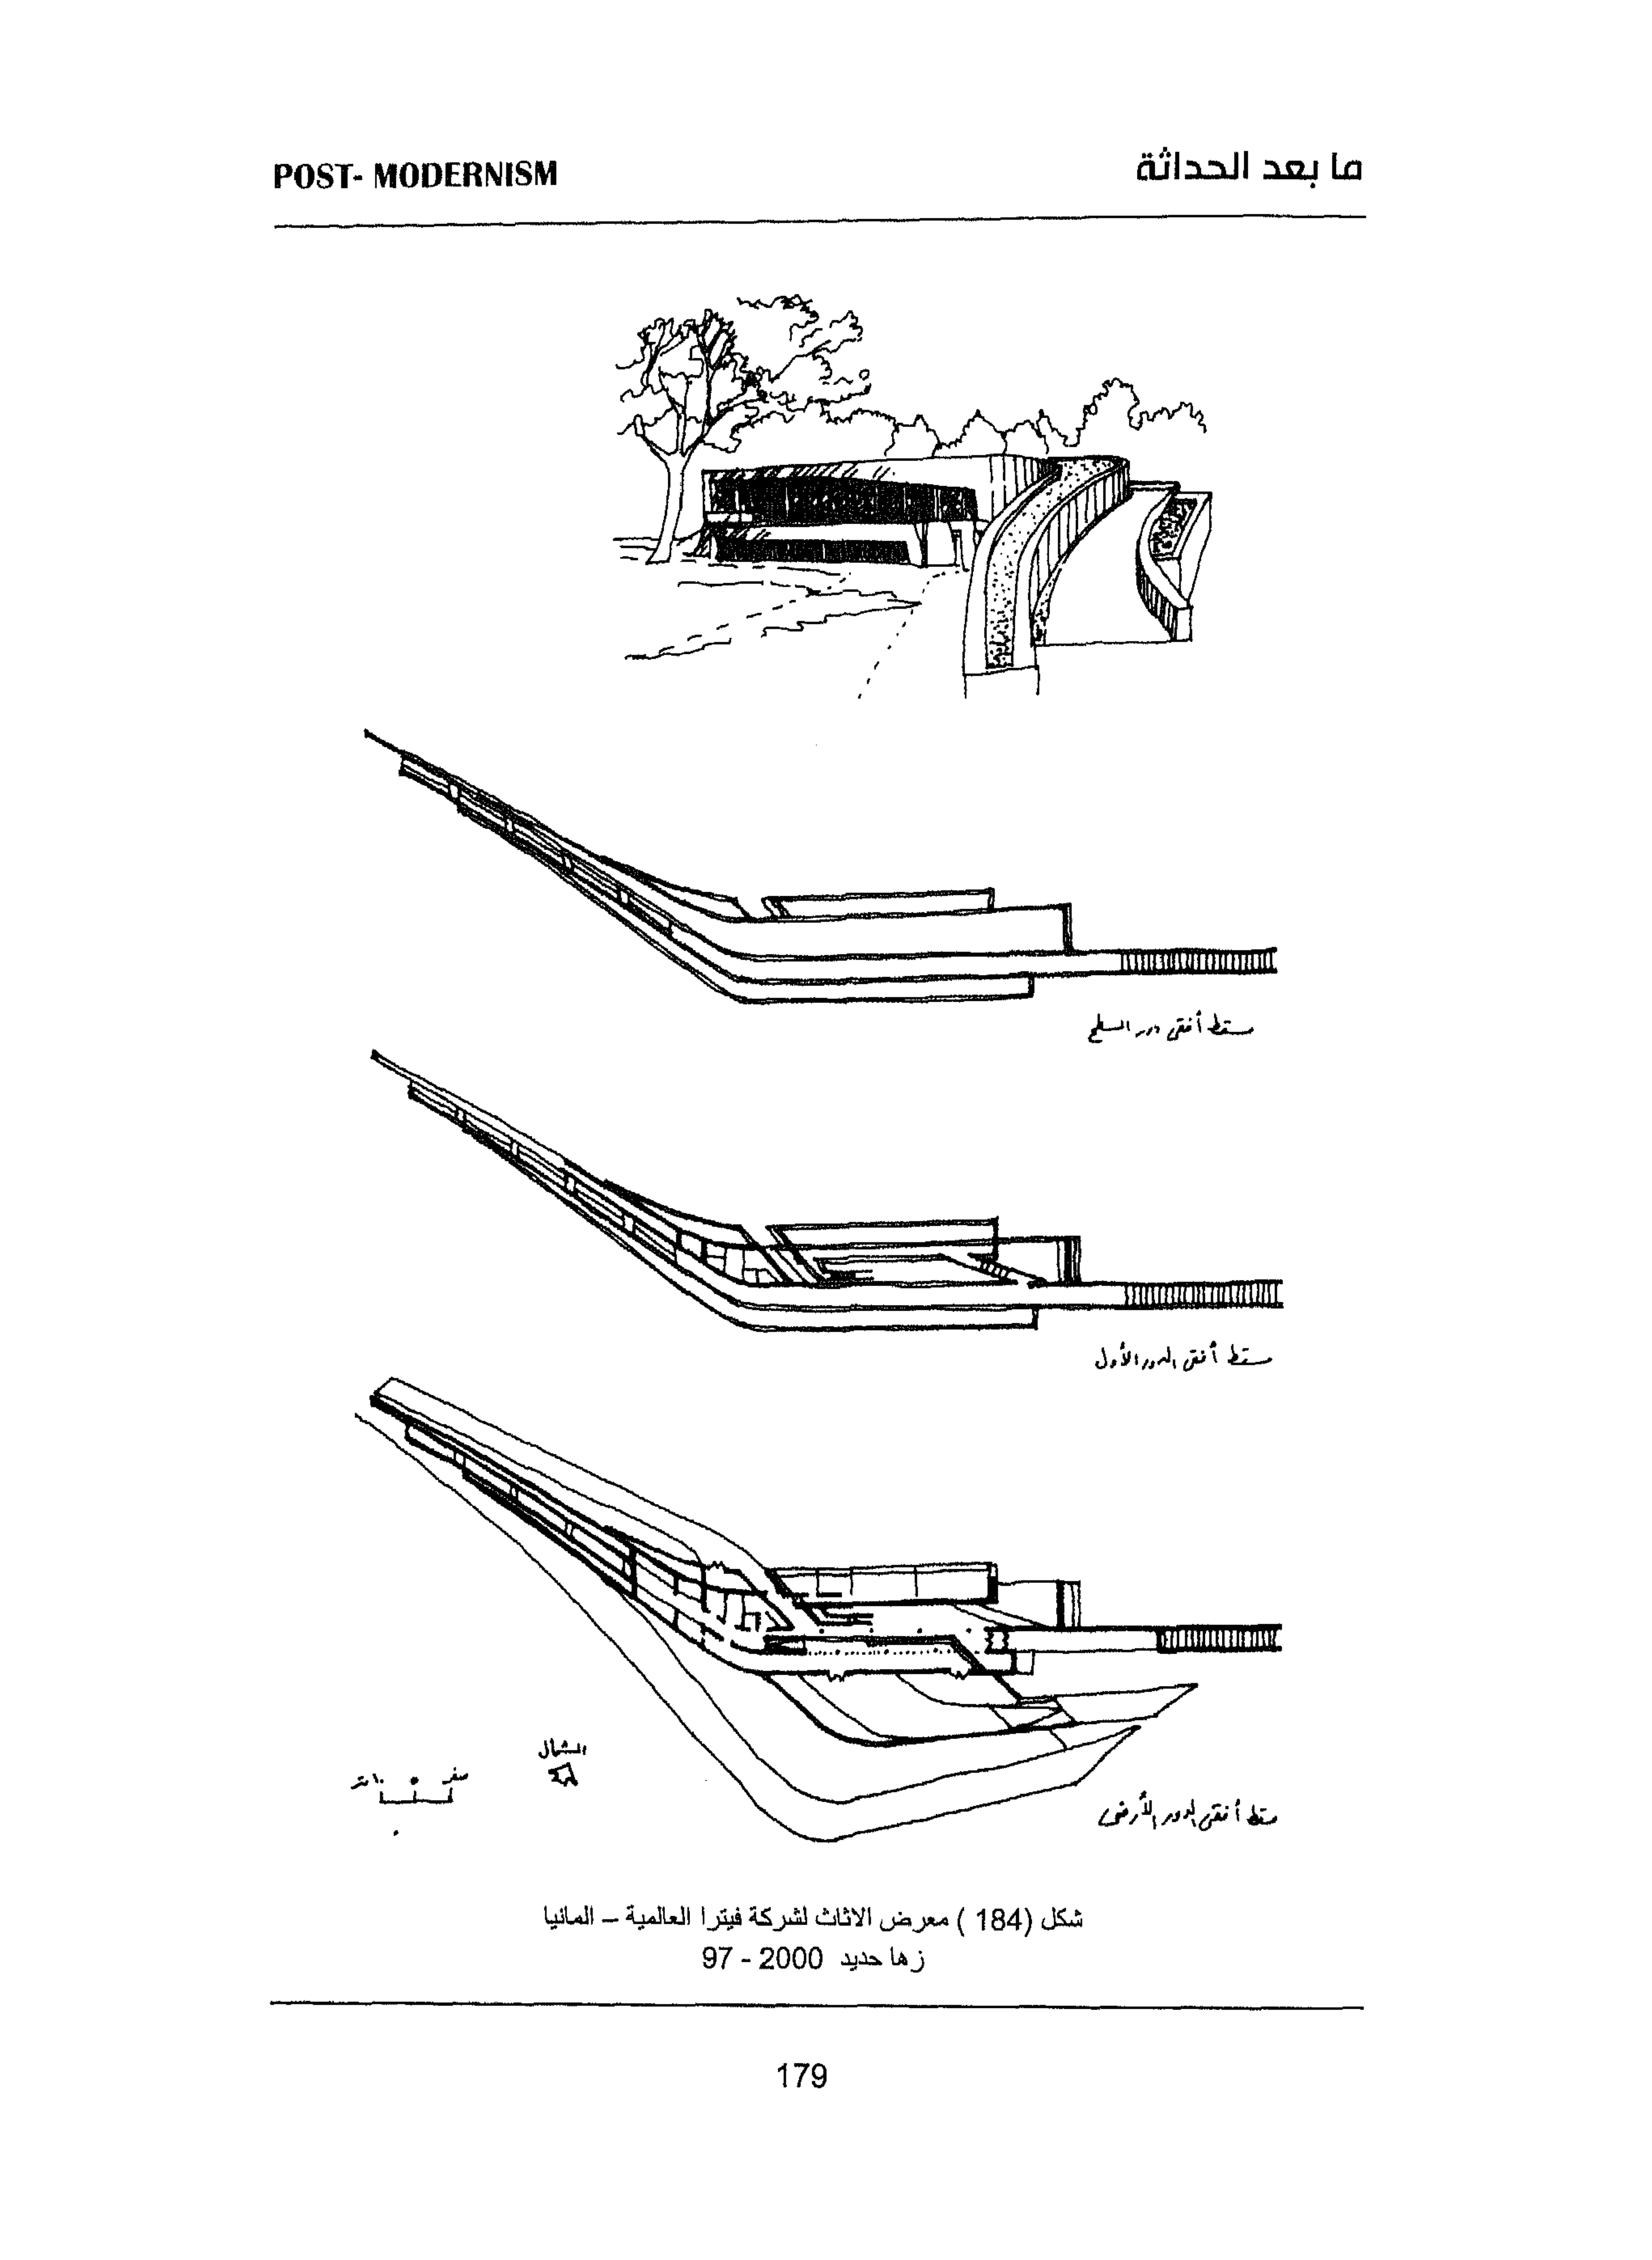 POST- MODERNISM
ما بعد الحداثة
مسقط أفقى دور السطح
مسقط أفقى الدور الأول
الشمال
صفر ٥ ١٠ متر
مسقط أفقى الدور الأرضى
شكل (184 ) معرض الاثاث لشركة فيترا العالمية – المانيا
زها حديد 2000 - 97
179